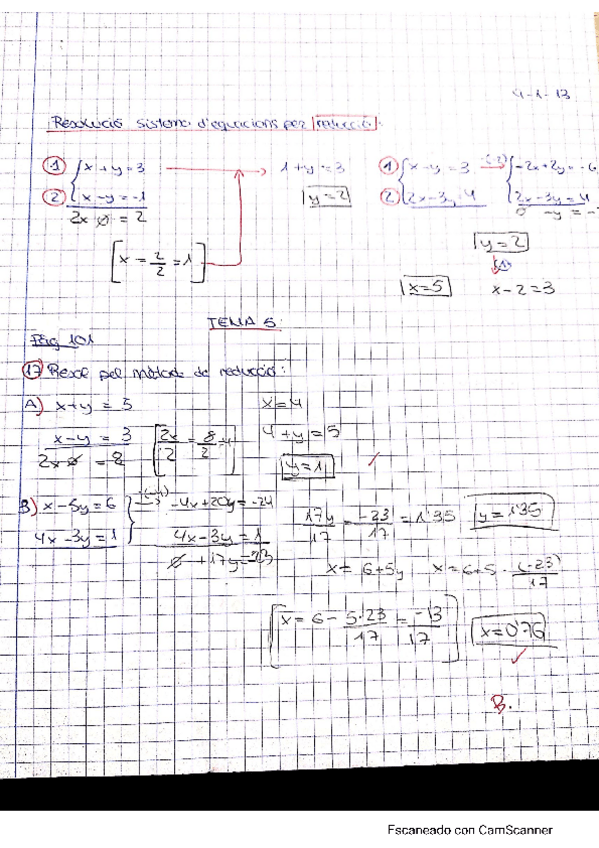 4-1-13
Resolució sistema d'equacions per reducció:
① { x+y=3 → 1+y=3
② { x-y=-1 y=2
2x ∅ = 2
[ x = 2/2 = 1 ]
① { x-y=3 (-2)→ { -2x+2y=-6
② { 2x-3y=4 { 2x-3y=4
0 -y=-
y=2
x=5 x-2=3
TEMA 5
Pàg 101
17 Resol pel mètode de reducció:
A) x+y=5 x=4
x-y=3 [ 2x/2 = 8/2 4 ] 4+y=5
2x ∅ =8 y=1
B) x-5y=6 } → -4x+20y=-24
4x-3y=1 4x-3y=1
∅ +17y=-23
17y/17 = -23/17 = 1'35 y=1'35
x= 6+5y x=6+5·(-23)/17
[ x= 6 - 5·23/17 = -13/17 ] x=0'76
B.
Escaneado con CamScanner